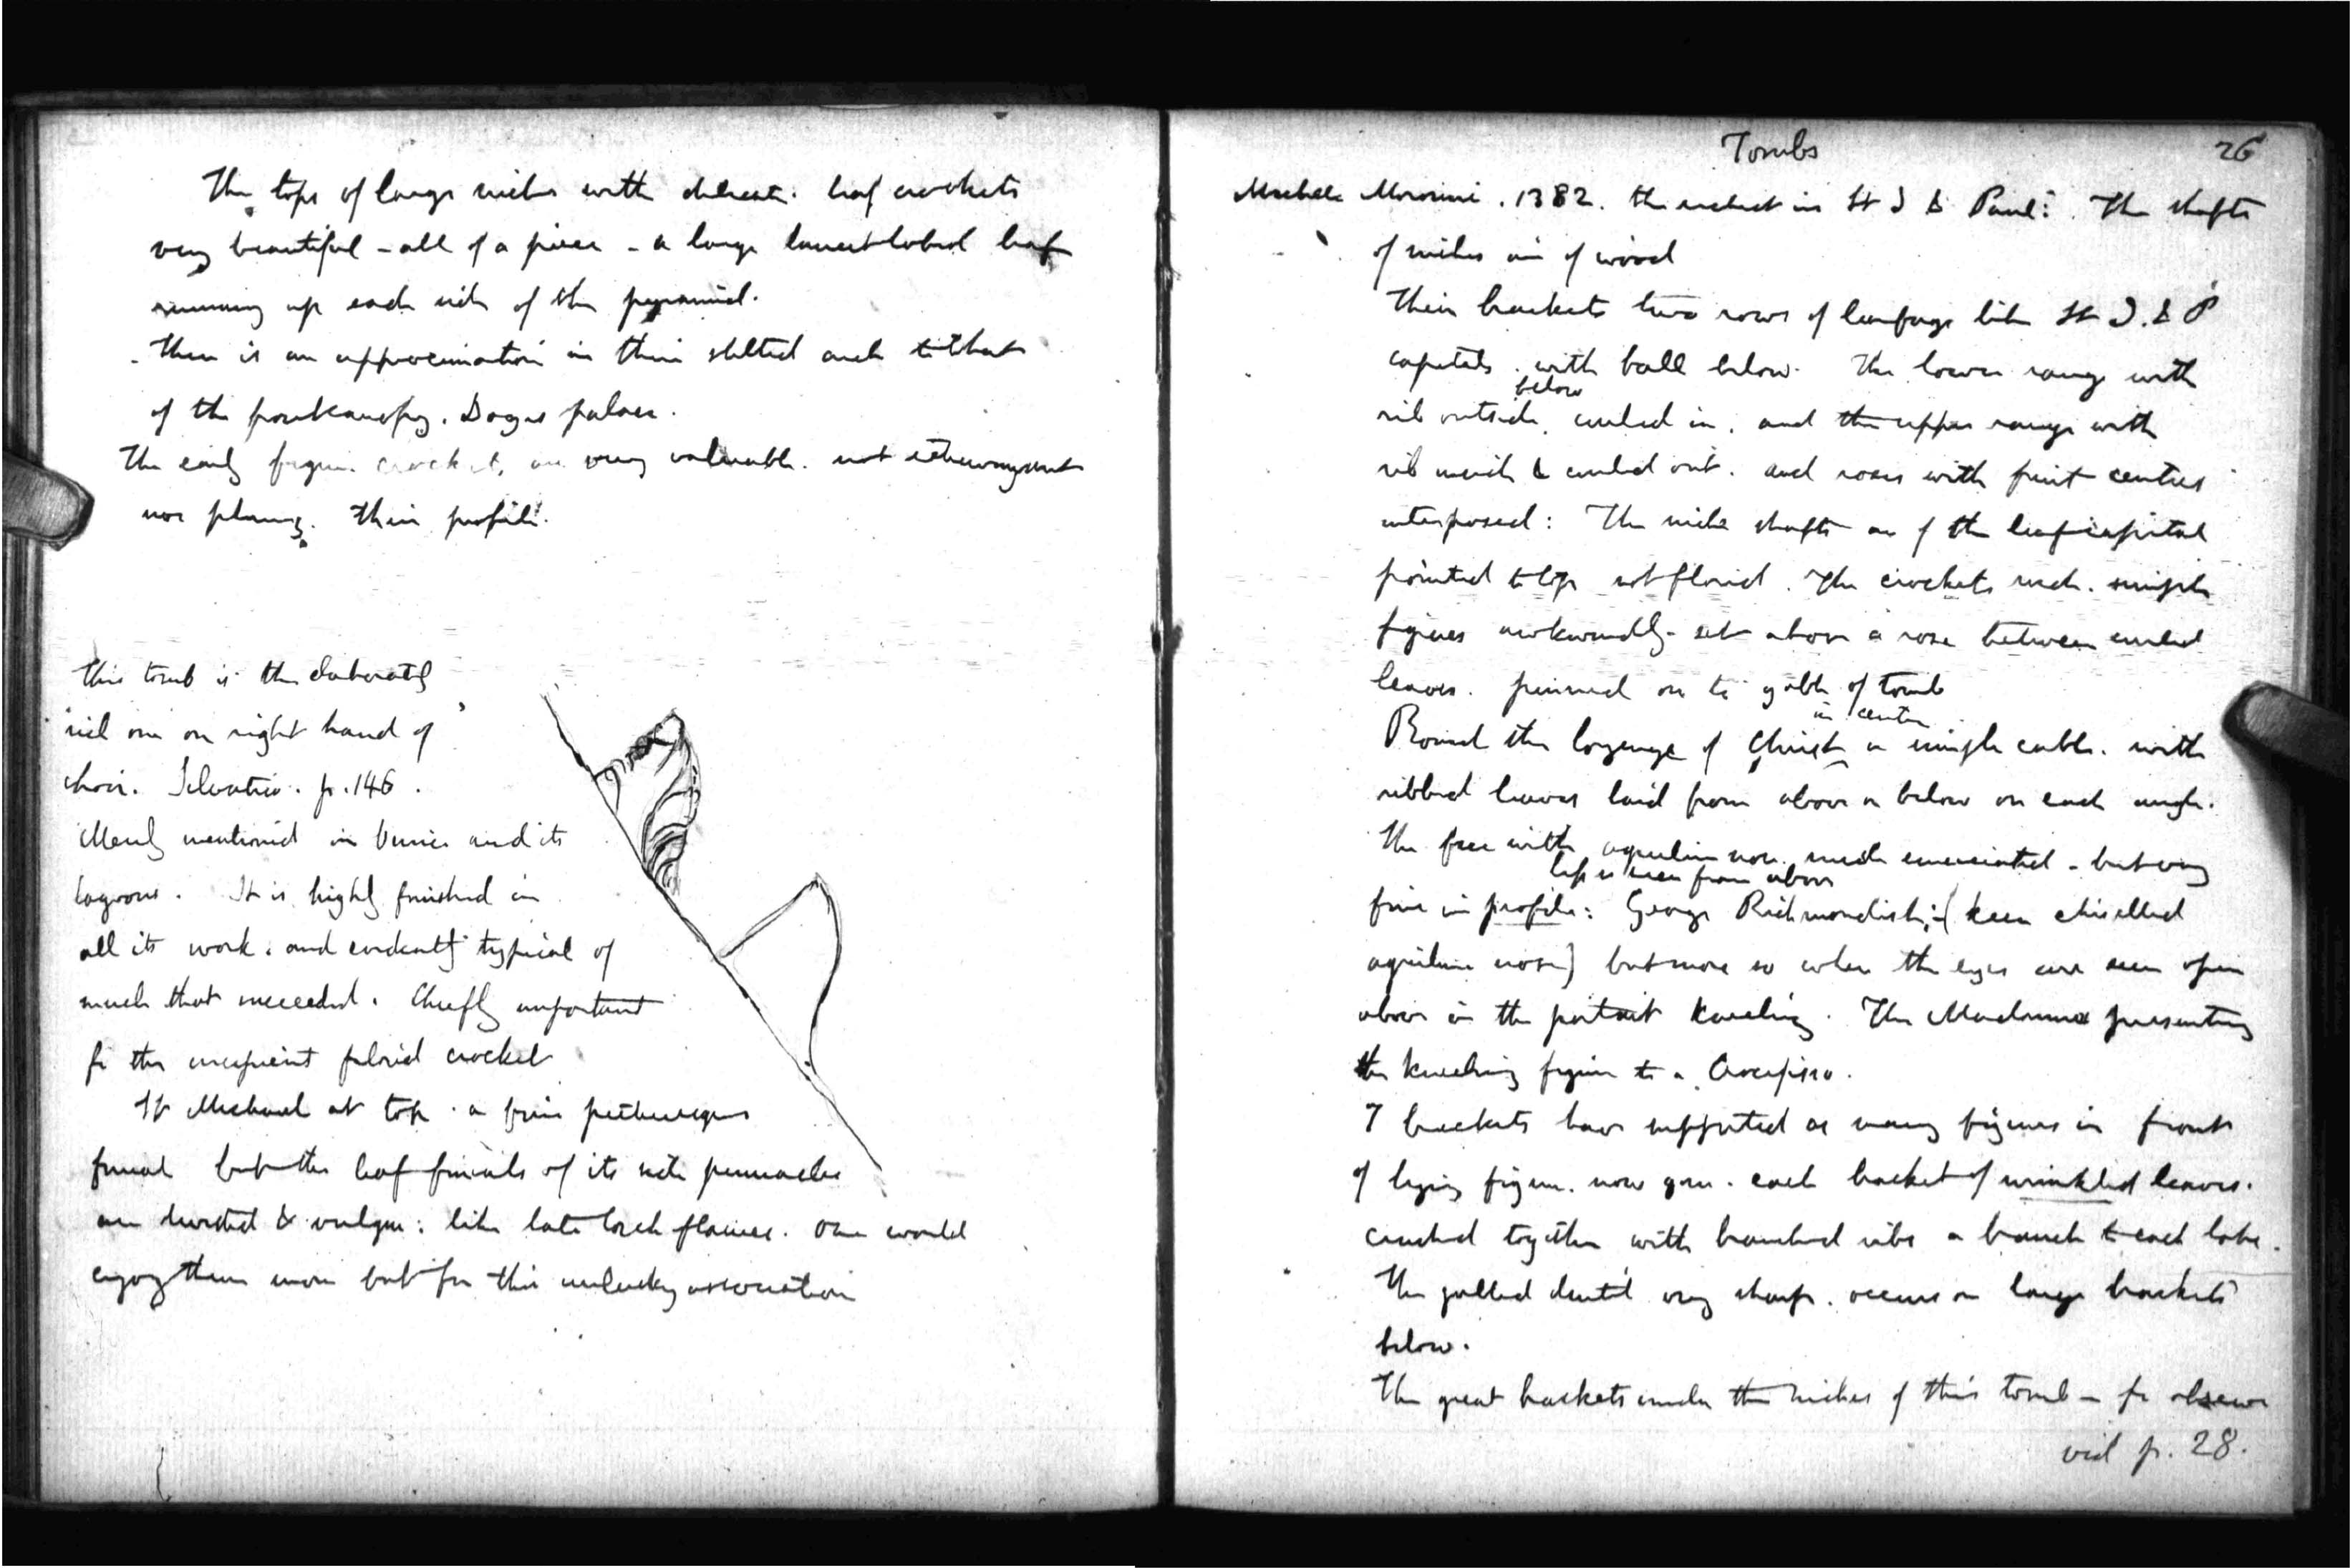 The tops of large niches with delicate. leaf crockets
very beautiful - all of a piece - a large lobed leaf
running up each side of the pyramid.
There is an approximation in their stilted arch to that
of the Doges palace.
The early figure crockets, are very valuable. not extravagant
nor their profile.
This tomb is the elaborately
rich one on right hand of
choir. Selvatico. p. 146.
Merely mentioned in Venice and its
lagoons. It is highly finished in
all its work. and evidently typical of
much that succeeded. Chiefly important
for the incipient florid crocket
St Michael at top. a fine picturesque
finial but the leaf finials of its side pinnacles
are twisted & vulgar: like late torch flames. One would
enjoy them more but for this unlucky association
Tombs
26
Michele Morosini. 1382. the richest in St J & Pauls. The shafts
of niches are of wood
Their brackets two rows of leafage like St J. & P
capitals. with ball below. The lower range with
rib outside below curled in. and the upper range with
rib inside & curled out. and roses with fruit centres
interposed: The niche shafts are of the leaf capital
pointed top not florid. The crockets rich. simple
figures awkwardly set above a rose between curled
leaves. pinned on to gable of tomb
Round the lozenge of Christ in center a simple cable. with
ribbed leaves laid from above & below on each angle.
The face with aquiline nose. much emaciated - but very
fine in profile: George Richmondish: (keen chiselled
lip is seen from above
aquiline nose) but more so when the eyes are seen open
above in the portrait kneeling. The Madonna presenting
the kneeling figure to a Crucifix.
7 brackets have supported as many figures in front
of lying figure. now gone. each bracket of wrinkled leaves.
crushed together with branched ribs a branch to each lobe.
The dentil very sharp. occurs on large brackets
below.
The great brackets under the niches of this tomb - for
vid p. 28.